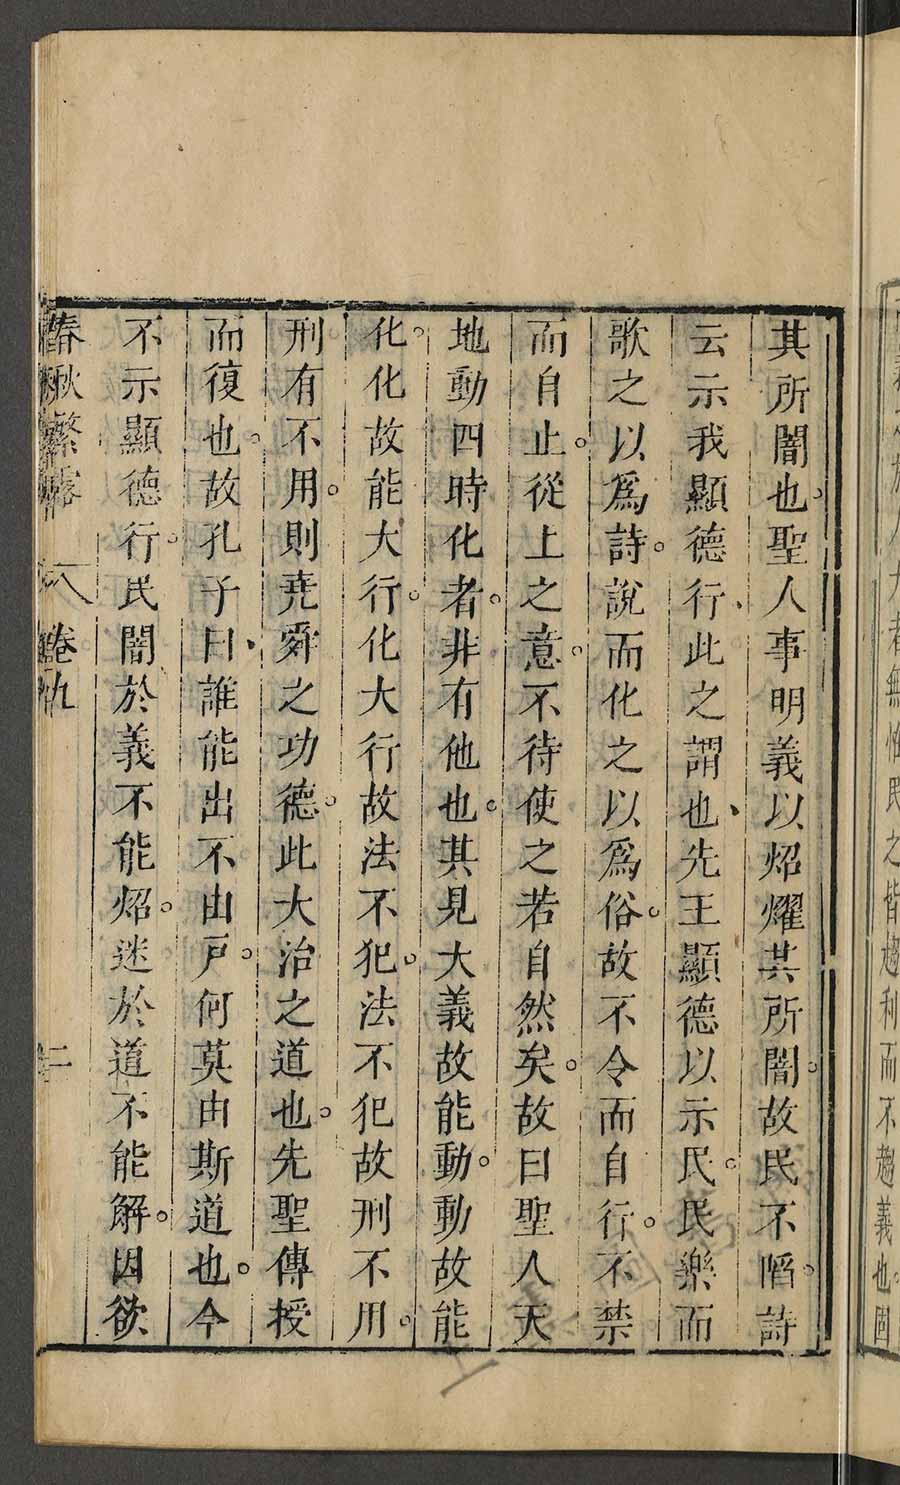 其所闇也聖人事明義以炤燿其所闇故民不陷詩
云示我顯德行此之謂也先王顯德以示民民樂而
歌之以爲詩說而化之以爲俗故不令而自行不禁
而自止從上之意不待使之若自然矣故曰聖人天
地動四時化者非有他也其見大義故能動動故能
化化故能大行化大行故法不犯法不犯故刑不用
刑有不用則堯舜之功德此大治之道也先聖傳授
而復也故孔子曰誰能出不由戸何莫由斯道也今
不示顯德行民闇於義不能炤迷於道不能解因欲
春秋繁露 八 卷九 二